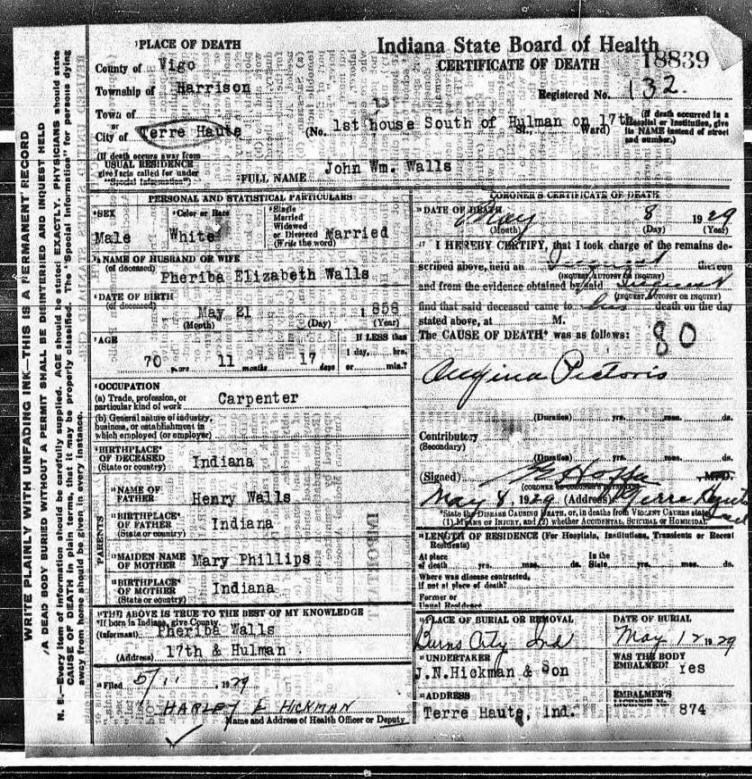 PLACE OF DEATH
Indiana State Board of Health
CERTIFICATE OF DEATH
18839
County of Vigo
Township of Harrison
Registered No. 132.
Town of
or
City of Terre Haute
(No. 1st house South of Hulman on 17th St., Ward)
(If death occurred in a Hospital or Institution, give its NAME instead of street and number.)
(If death occurs away from USUAL RESIDENCE give facts called for under "Special Information")
FULL NAME John Wm. Walls
PERSONAL AND STATISTICAL PARTICULARS
SEX
Male
Color or Race
White
Single
Married
Widowed
or Divorced
(Write the word)
Married
NAME OF HUSBAND OR WIFE
(of deceased)
Pheriba Elizabeth Walls
DATE OF BIRTH
(of deceased)
May 21 1858
(Month) (Day) (Year)
AGE
70 years 11 months 17 days
IF LESS than
1 day, hrs.
or min.?
OCCUPATION
(a) Trade, profession, or
particular kind of work
Carpenter
(b) General nature of industry,
business, or establishment in
which employed (or employer)
BIRTHPLACE
OF DECEASED
(State or country)
Indiana
PARENTS
NAME OF
FATHER
Henry Walls
BIRTHPLACE
OF FATHER
(State or country)
Indiana
MAIDEN NAME
OF MOTHER
Mary Phillips
BIRTHPLACE
OF MOTHER
(State or country)
Indiana
THE ABOVE IS TRUE TO THE BEST OF MY KNOWLEDGE
*If born in Indiana, give County.
(Informant) Pheriba Walls
(Address) 17th & Hulman
Filed 5/11, 1929
HARLEY E HICKMAN
Name and Address of Health Officer or Deputy
CORONER'S CERTIFICATE OF DEATH
DATE OF DEATH
May 8 1929
(Month) (Day) (Year)
I HEREBY CERTIFY, that I took charge of the remains described above, held an Inquest thereon
(INQUEST, AUTOPSY OR INQUIRY)
and from the evidence obtained by said Inquest
(INQUEST, AUTOPSY OR INQUIRY)
find that said deceased came to his death on the day
stated above, at M.
The CAUSE OF DEATH* was as follows:
80
Angina Pectoris
(Duration) yrs. mos. ds.
Contributory
(Secondary)
(Duration) yrs. mos. ds.
(Signed)
May 8, 1929 (Address) Terre Haute
*State the DISEASE CAUSING DEATH, or, in deaths from VIOLENT CAUSES state
(1) MEANS OF INJURY, and (2) whether ACCIDENTAL, SUICIDAL or HOMICIDAL.
LENGTH OF RESIDENCE (For Hospitals, Institutions, Transients or Recent Residents)
At place
of death yrs. mos. ds.
In the
State yrs. mos. ds.
Where was disease contracted,
if not at place of death?
Former or
Usual Residence
PLACE OF BURIAL OR REMOVAL
Burns City Ind
DATE OF BURIAL
May 12 1929
UNDERTAKER
J.N.Hickman & Son
WAS THE BODY
EMBALMED? Yes
ADDRESS
Terre Haute, Ind.
EMBALMER'S
LICENSE No. 874
WRITE PLAINLY WITH UNFADING INK—THIS IS A PERMANENT RECORD
A DEAD BODY BURIED WITHOUT A PERMIT SHALL BE DISINTERRED AND INQUEST HELD
N. B.—Every item of information should be carefully supplied. AGE should be stated EXACTLY. PHYSICIANS should state
CAUSE OF DEATH in plain terms, that it may be properly classified. The "Special Information" for persons dying
away from home should be given in every instance.